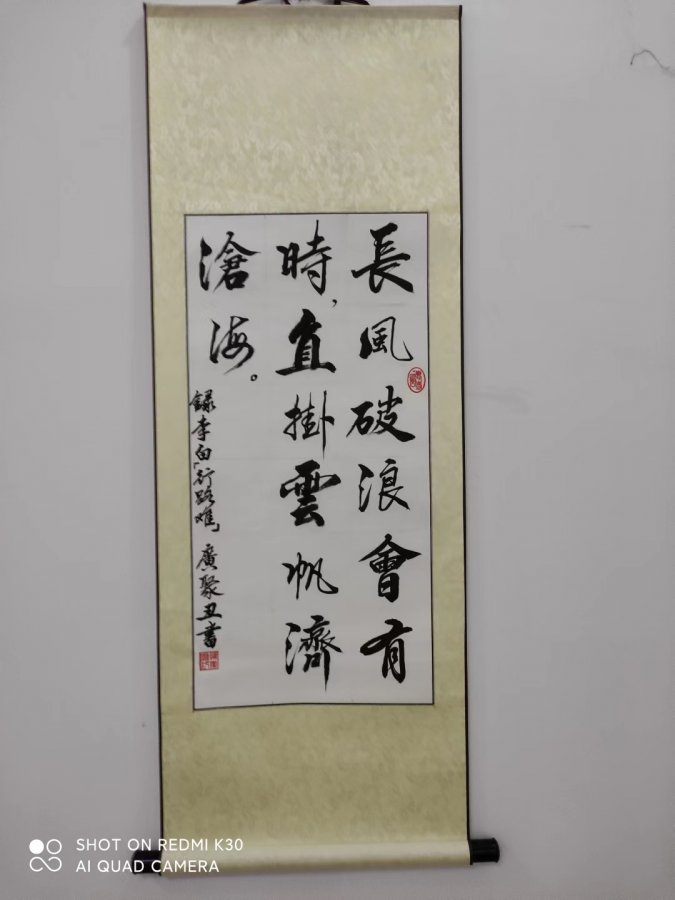 長風破浪會有
時，直掛雲帆濟
滄海。
録李白「行路难」廣聚丑書
SHOT ON REDMI K30
AI QUAD CAMERA